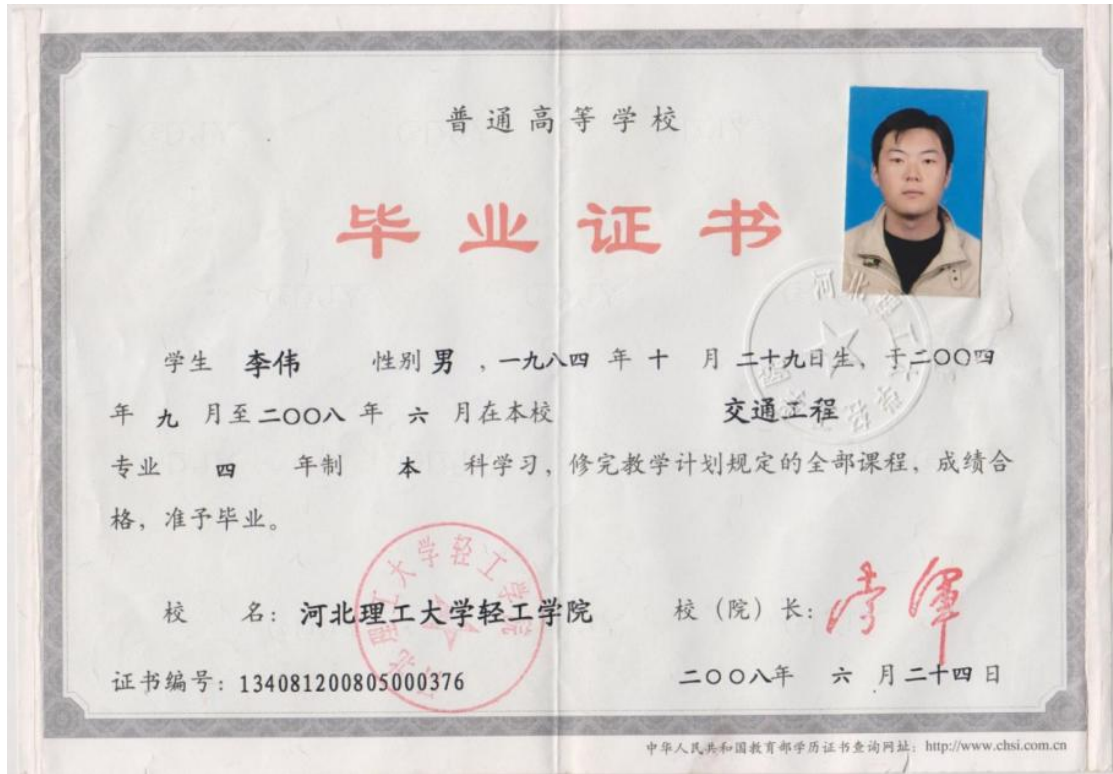 普通高等学校
毕业证书
学生 李伟 性别 男 ，一九八四 年 十 月 二十九日生，于二〇〇四
年 九 月至二〇〇八 年 六 月在本校 交通工程
专业 四 年制 本 科学习，修完教学计划规定的全部课程，成绩合
格，准予毕业。
校 名：河北理工大学轻工学院 校（院）长：
证书编号：134081200805000376 二〇〇八年 六 月二十四日
河北理工大学轻工学院
中华人民共和国教育部学历证书查询网址：http://www.chsi.com.cn